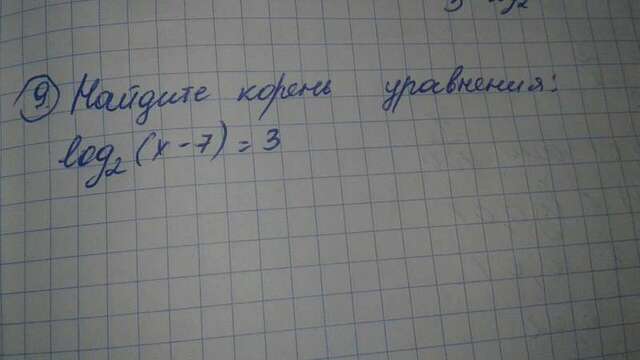 9. Найдите корень уравнения:
log₂(x-7)=3